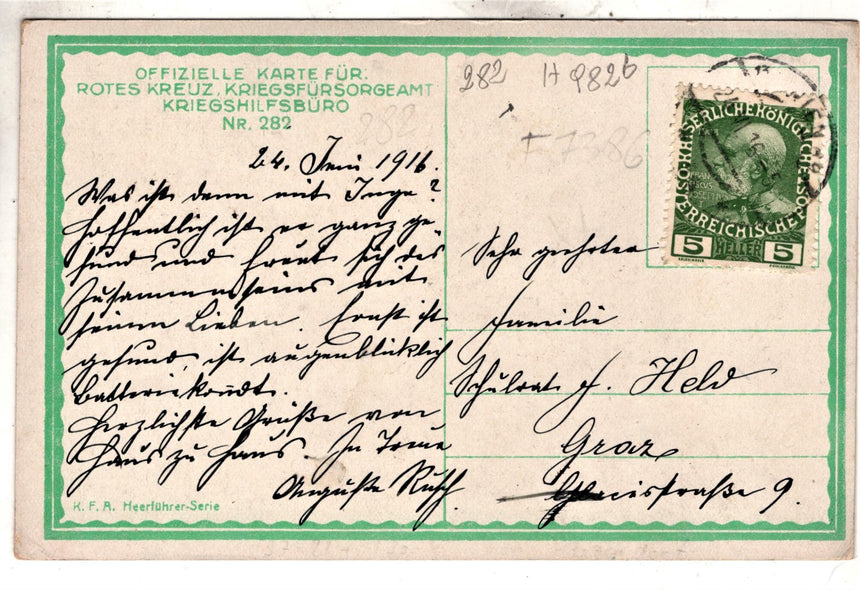 OFFIZIELLE KARTE FÜR:
ROTES KREUZ, KRIEGSFÜRSORGEAMT
KRIEGSHILFSBÜRO
NR. 282
282
282 H 9826
F 7386
24. Juni 1916.
Was ist denn mit Inge?
Hoffentlich ist er ganz ge-
sund und freut sich des
Zusammenseins mit
seinen Lieben. Ernst ist
gesund, ist augenblicklich
Batteriekomdt.
Herzlichste Grüße von
Haus zu Haus. In Treue
Auguste Rusch.
K. F. A. Heerführer-Serie
KAISERLICHE KÖNIGLICHE ÖSTERREICHISCHE POST
5 HELLER 5
Sehr geehrten
Familie
Schulrat J. Held
Graz
Glacisstraße 9.